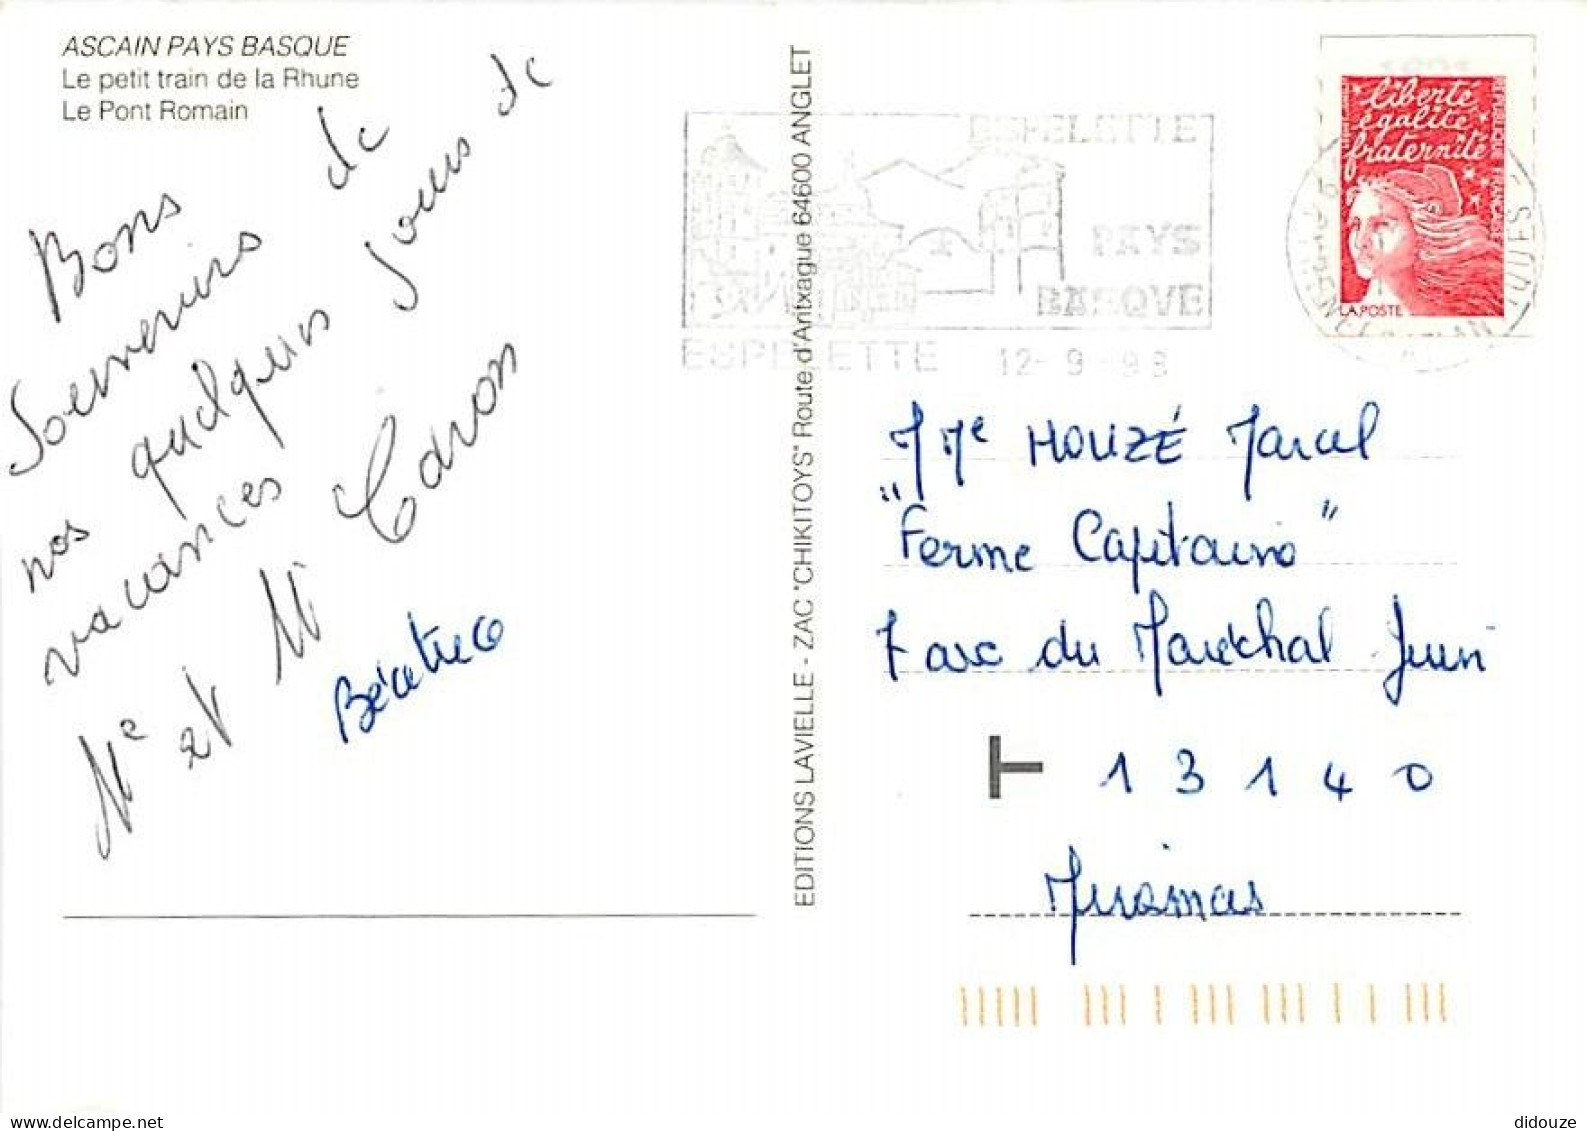 ASCAIN PAYS BASQUE
Le petit train de la Rhune
Le Pont Romain
Bons
Souvenirs de
nos quelques jours de
vacances
Me et Mr
Béatrice
EDITIONS LAVIELLE - ZAC "CHIKITOYS" Route d'Antxague 64600 ANGLET
ESPELETTE
PAYS
BASQVE
ESPELETTE 12-9-98
liberté
égalité
fraternité
REPUBLIQUE FRANÇAISE
LA POSTE
HOUZÉ Marcel
"Ferme Capitaine"
7 du Maréchal Juin
T 13140
Miramas
didouze